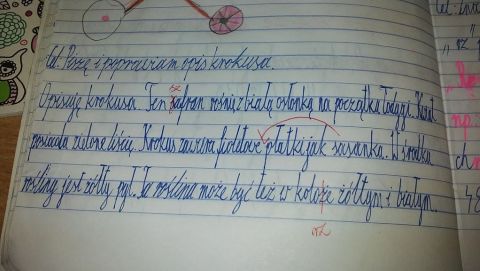 Cel: Piszę i poprawiam opis krokusa.
Opisuję krokusa. Ten sz safran rośnie z białą osłonką na początku łodygi. Kwiat
posiada zielone liście. Krokus zawiera fioletowe płatki jak sasanka. W środku
rośliny jest żółty pył. Ta roślina może być też w kolorze żółtym i białym.
rz